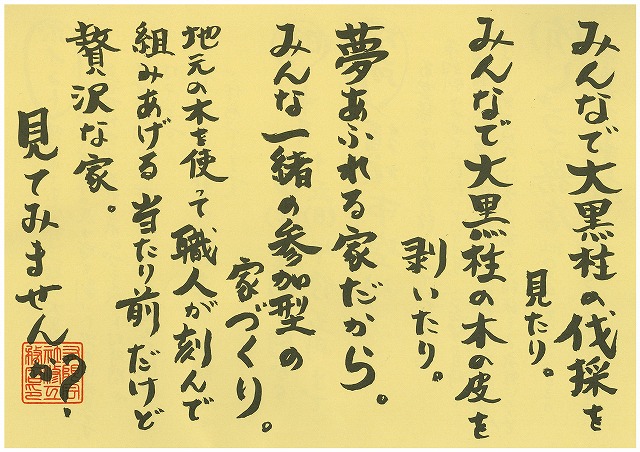 みんなで大黒柱の伐採を
見たり。
みんなで大黒柱の木の皮を
剥いたり。
夢あふれる家だから。
みんな一緒の参加型の
家づくり。
地元の木を使って職人が刻んで
組みあげる当たり前だけど
贅沢な家。
見てみませんか？